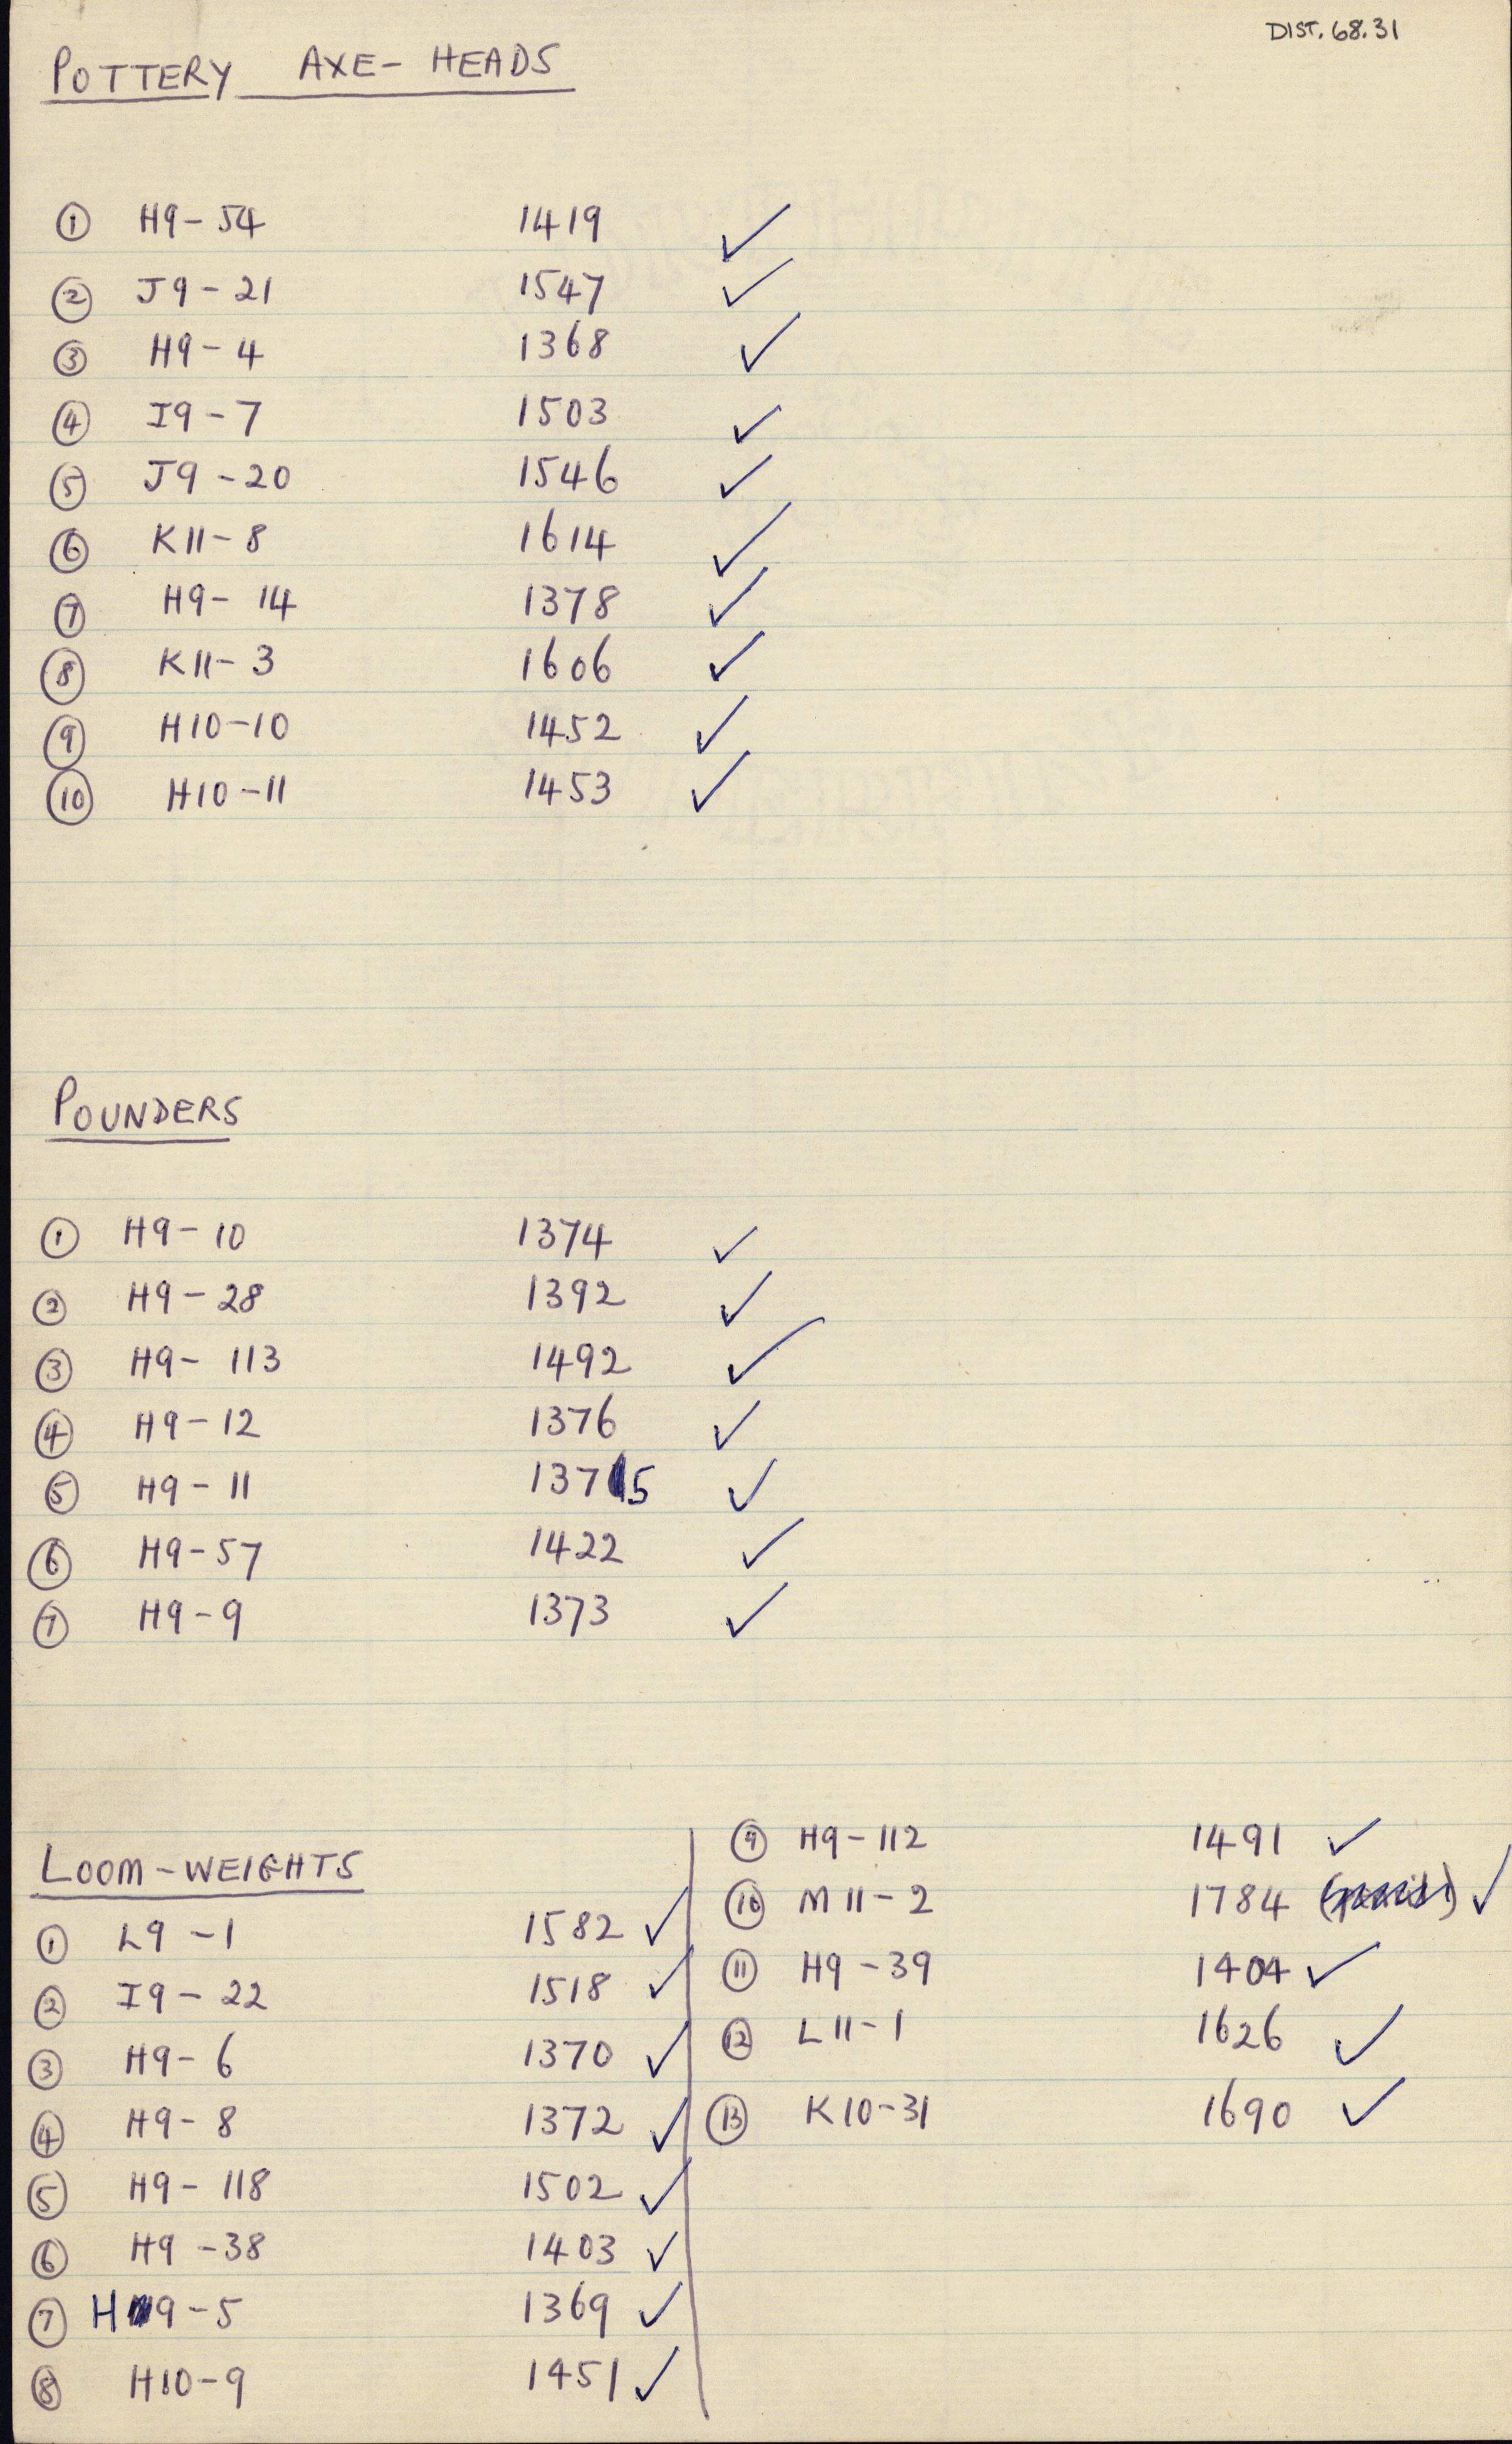 DIST. 68.31
POTTERY AXE-HEADS
① H9-54 1419 ✓
② J9-21 1547 ✓
③ H9-4 1368 ✓
④ I9-7 1503 ✓
⑤ J9-20 1546 ✓
⑥ K11-8 1614 ✓
⑦ H9-14 1378 ✓
⑧ K11-3 1606 ✓
⑨ H10-10 1452 ✓
⑩ H10-11 1453 ✓
POUNDERS
① H9-10 1374 ✓
② H9-28 1392 ✓
③ H9-113 1492 ✓
④ H9-12 1376 ✓
⑤ H9-11 1375 ✓
⑥ H9-57 1422 ✓
⑦ H9-9 1373 ✓
LOOM-WEIGHTS
① L9-1 1582 ✓
② I9-22 1518 ✓
③ H9-6 1370 ✓
④ H9-8 1372 ✓
⑤ H9-118 1502 ✓
⑥ H9-38 1403 ✓
⑦ H9-5 1369 ✓
⑧ H10-9 1451 ✓
⑨ H9-112 1491 ✓
⑩ M11-2 1784 ✓
⑪ H9-39 1404 ✓
⑫ L11-1 1626 ✓
⑬ K10-31 1690 ✓